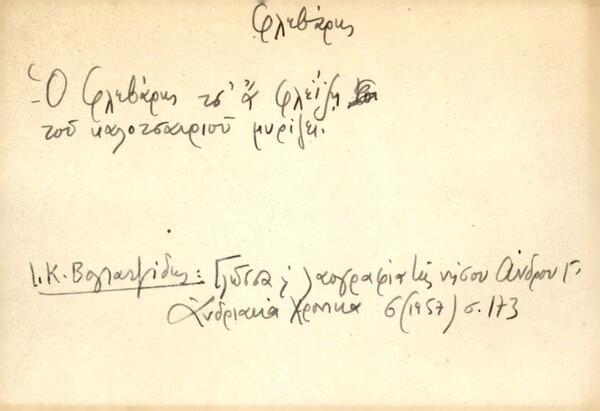 Φλεβάρης
Ὁ Φλεβάρης τσ' ἄ φλεΐζη
τοῦ καλοτσαιριοῦ μυρίζει.
Ι. Κ. Βογιατζίδης: Γλῶσσα κ λαογραφία τῆς νήσου Ἄνδρου Γ',
Ἀνδριακά Χρονικά 6 (1957) σ. 173